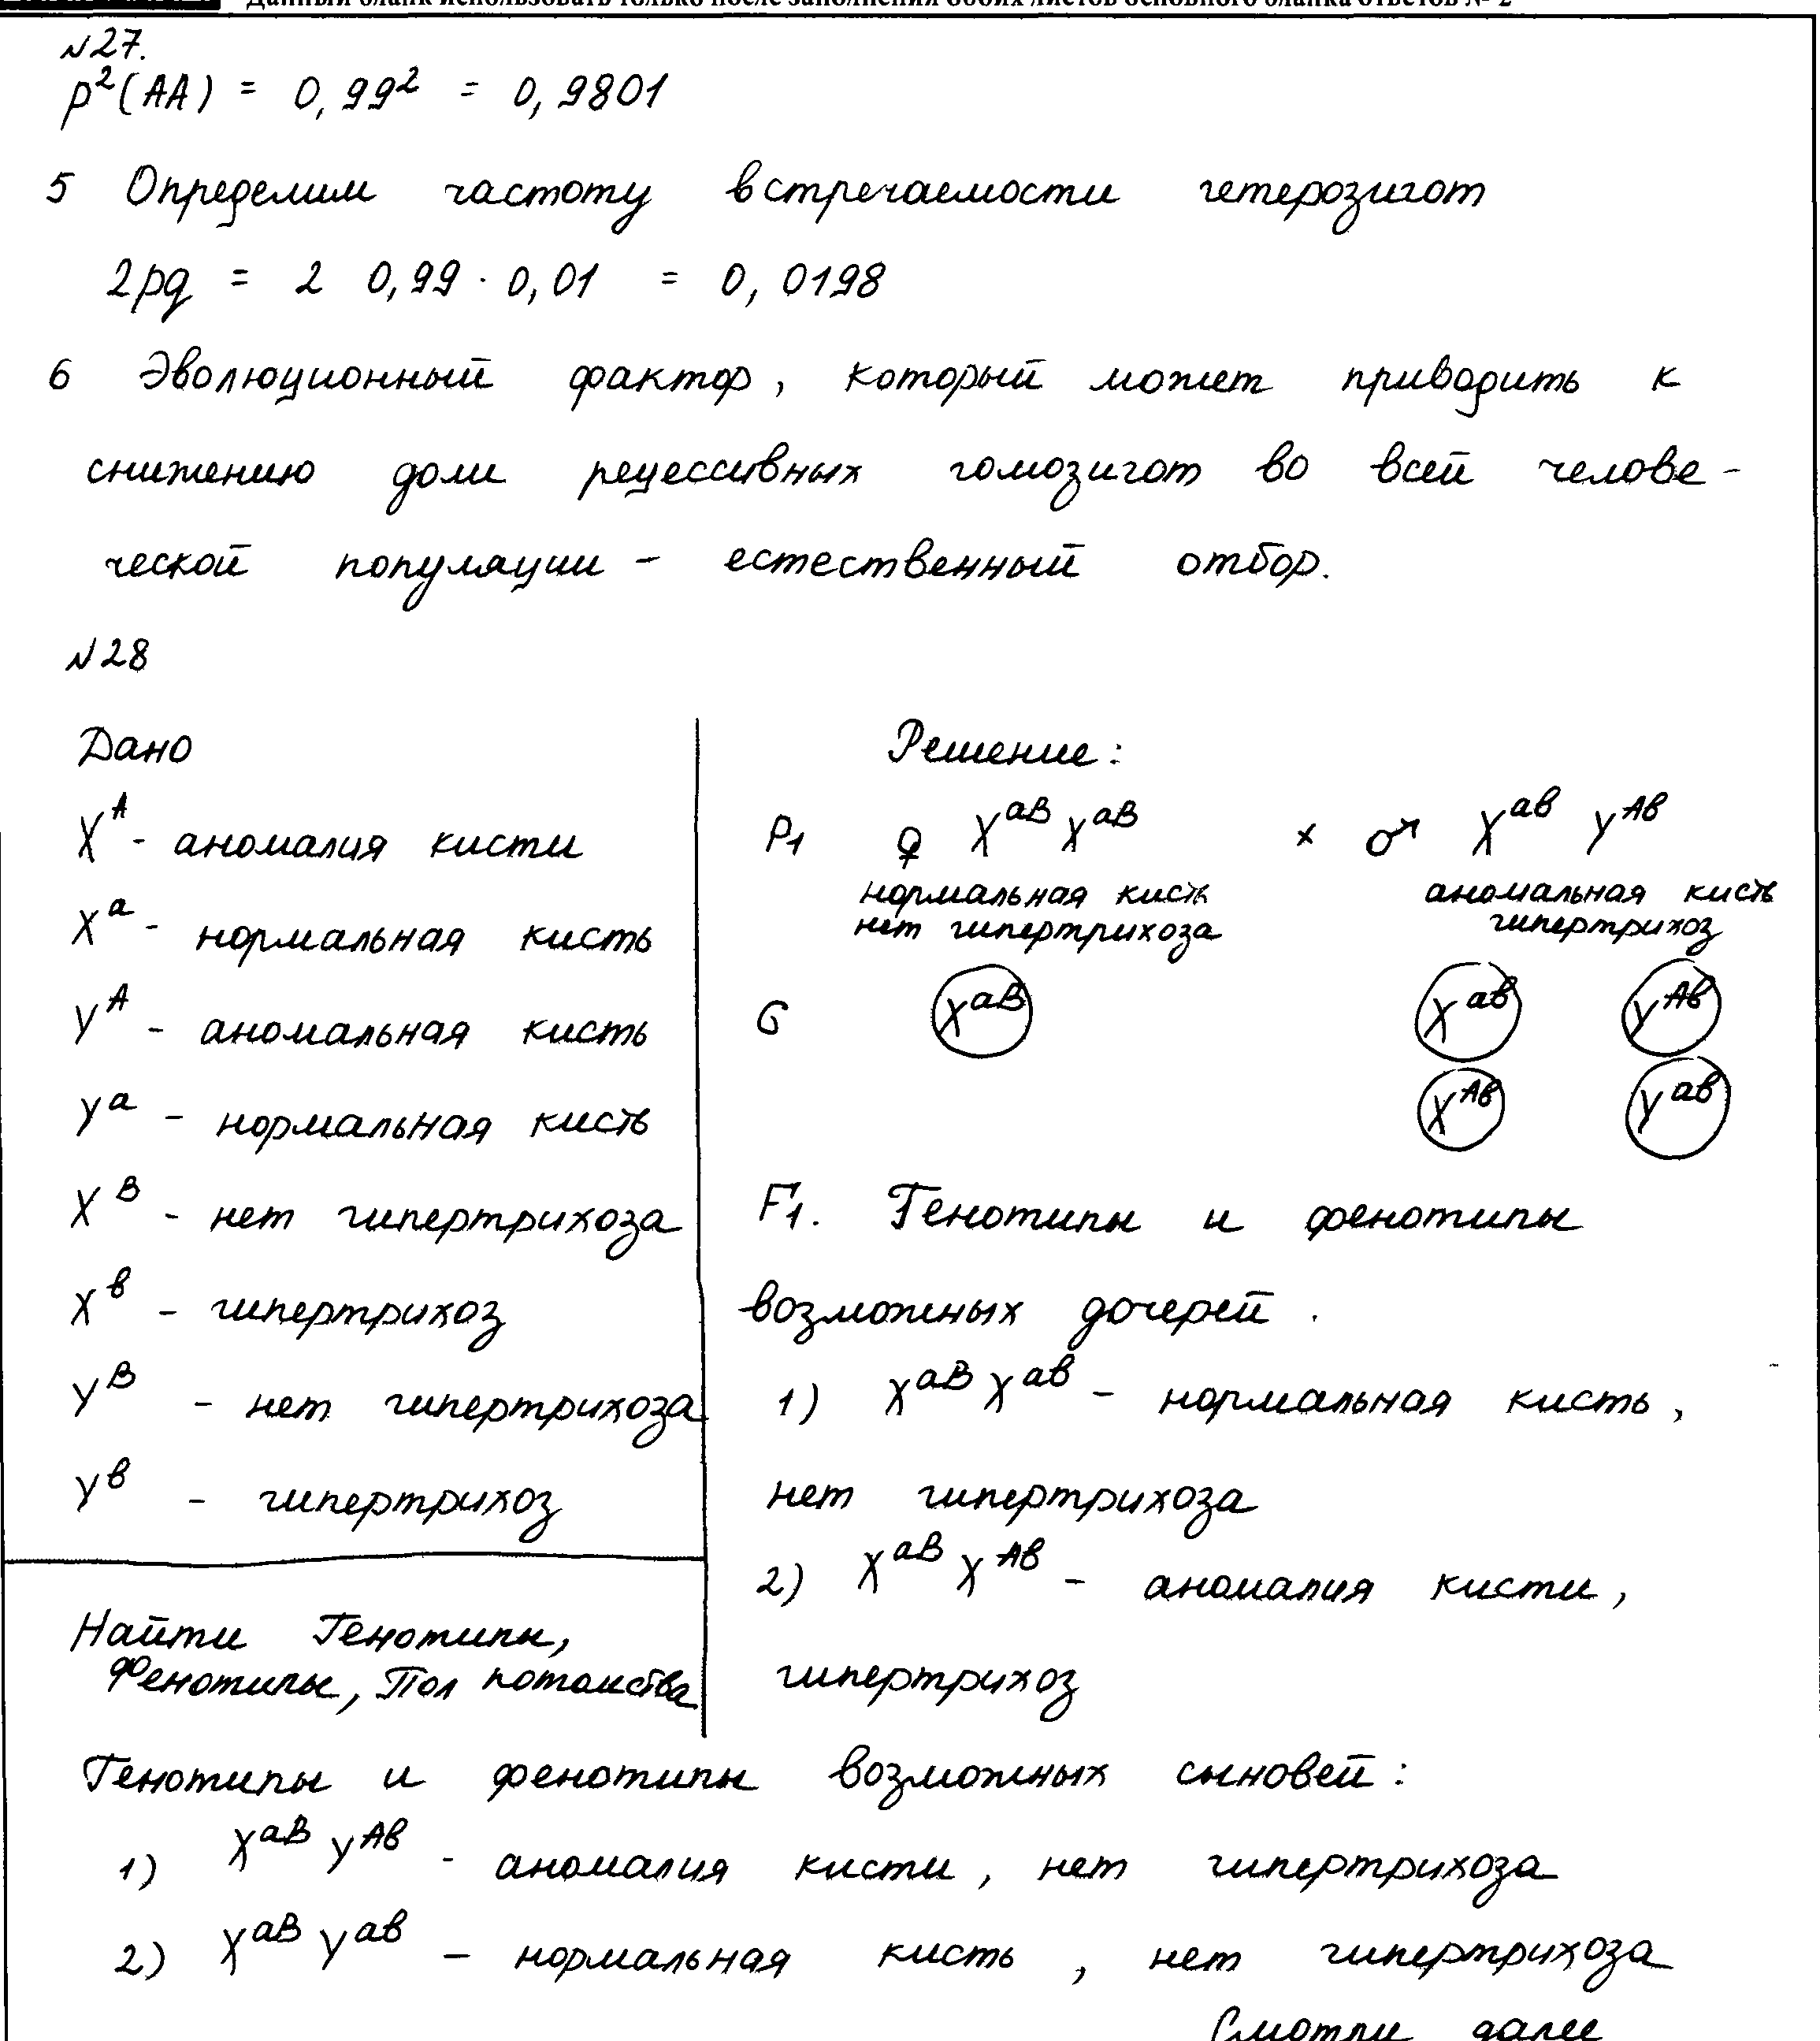 Данный бланк использовать только после заполнения обоих листов основного бланка ответов № 2
№27.
p²(AA) = 0,99² = 0,9801
5 Определим частоту встречаемости гетерозигот
2pq = 2 0,99 · 0,01 = 0,0198
6 Эволюционный фактор, который может приводить к
снижению доли рецессивных гомозигот во всей челове-
ческой популяции – естественный отбор.
№28
Дано
X^A - аномалия кисти
X^a - нормальная кисть
Y^A - аномальная кисть
Y^a - нормальная кисть
X^B - нет гипертрихоза
X^b - гипертрихоз
Y^B - нет гипертрихоза
Y^b - гипертрихоз
Найти Генотипы,
Фенотипы, Пол потомства
Решение:
P1 ♀ X^aB X^aB × ♂ X^ab Y^Ab
нормальная кисть аномальная кисть
нет гипертрихоза гипертрихоз
G X^aB X^ab Y^Ab
X^Ab Y^ab
F1. Генотипы и фенотипы
возможных дочерей.
1) X^aB X^ab – нормальная кисть,
нет гипертрихоза
2) X^aB X^Ab – аномалия кисти,
гипертрихоз
Генотипы и фенотипы возможных сыновей:
1) X^aB Y^Ab - аномалия кисти, нет гипертрихоза
2) X^aB Y^ab – нормальная кисть, нет гипертрихоза
Смотри далее